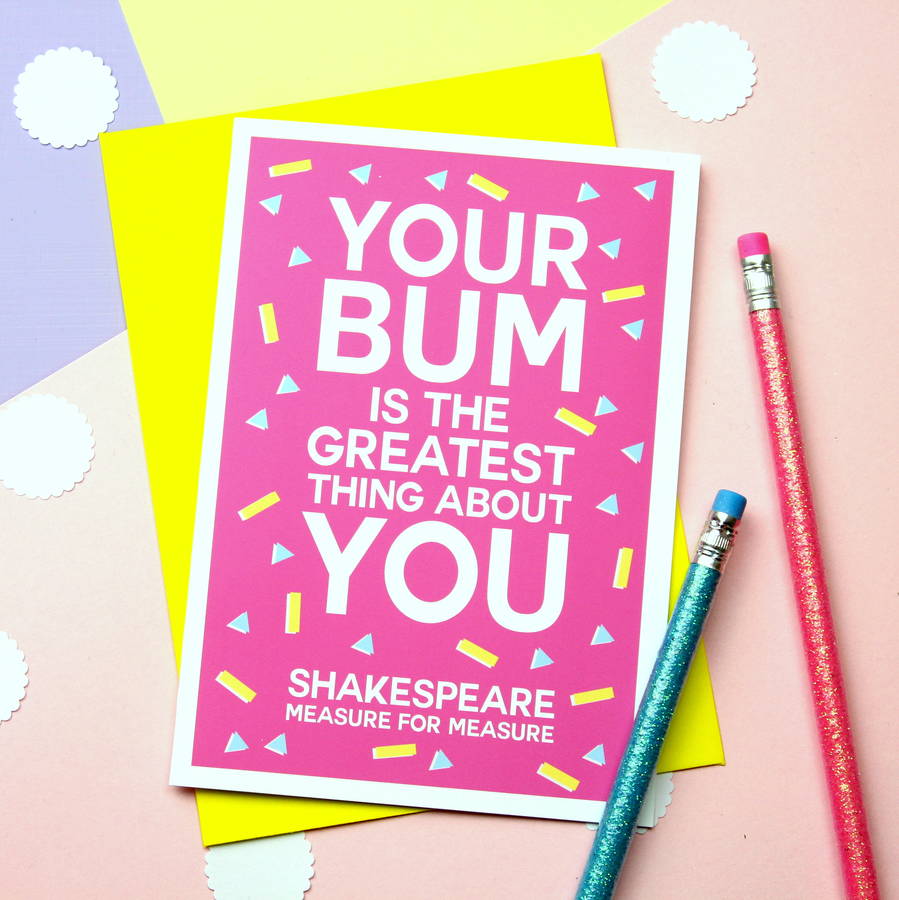 YOUR
BUM
IS THE
GREATEST
THING ABOUT
YOU
SHAKESPEARE
MEASURE FOR MEASURE